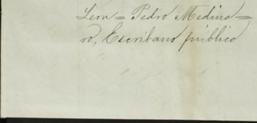 Leon = Pedro Medina =
ro, Escribano público